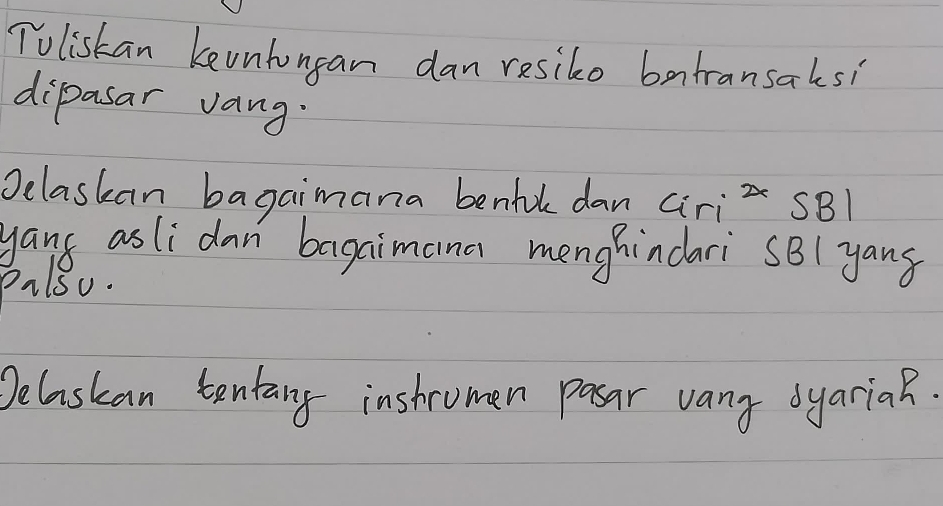 Tuliskan keuntungan dan resiko bertransaksi
dipasar uang.
Jelaskan bagaimana bentuk dan ciri 2x SBI
yang asli dan bagaimana menghindari SBI yang
palsu.
Jelaskan tentang instrumen pasar uang syariah.